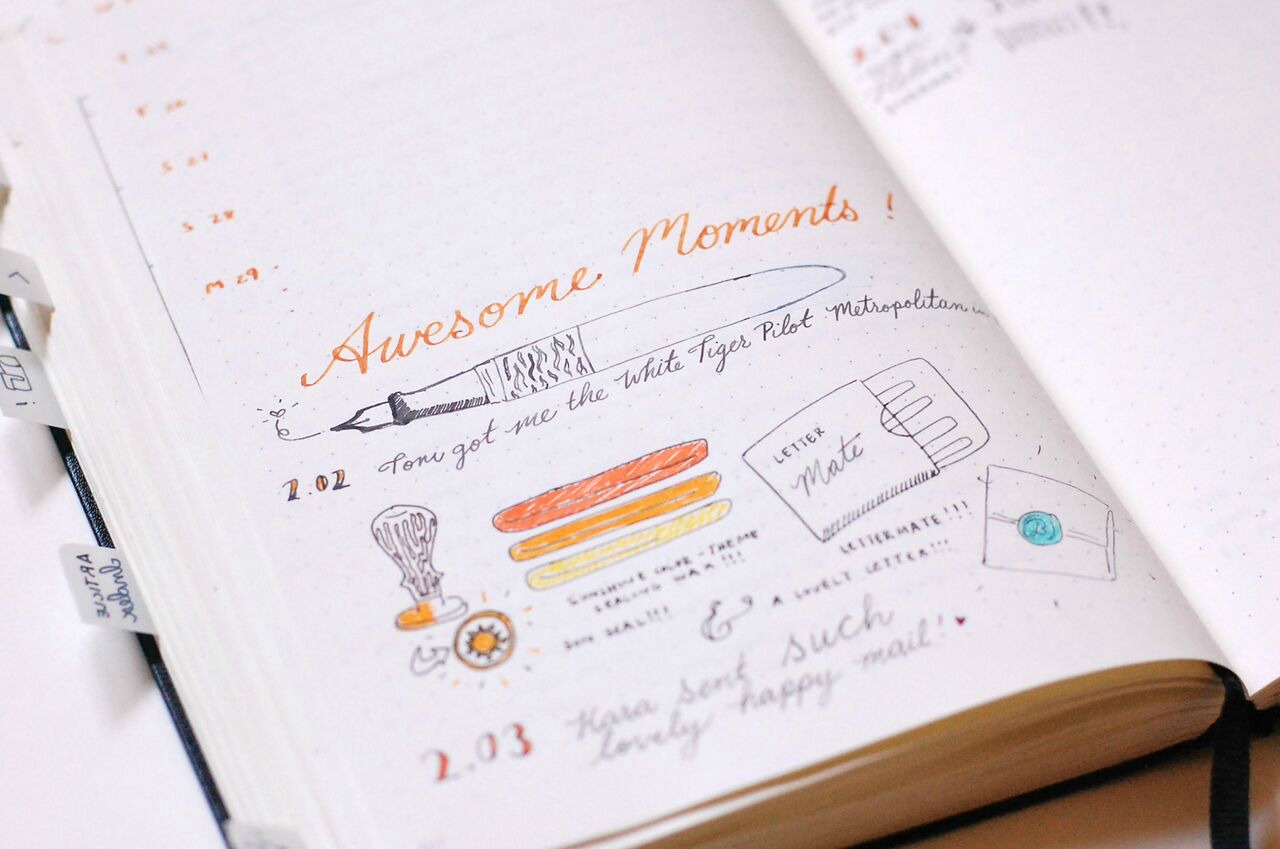 F 26
S 27
S 28
M 29
Awesome Moments!
2.02 Toni got me the White Tiger Pilot Metropolitan
LETTER
Mate
LETTERMATE!!!
B
SUNSHINE COLOR-THEME
SEALING WAX!!!
SUN SEAL!!!
& A LOVELY LETTER!!!
2.03 Kara sent such
lovely happy mail!